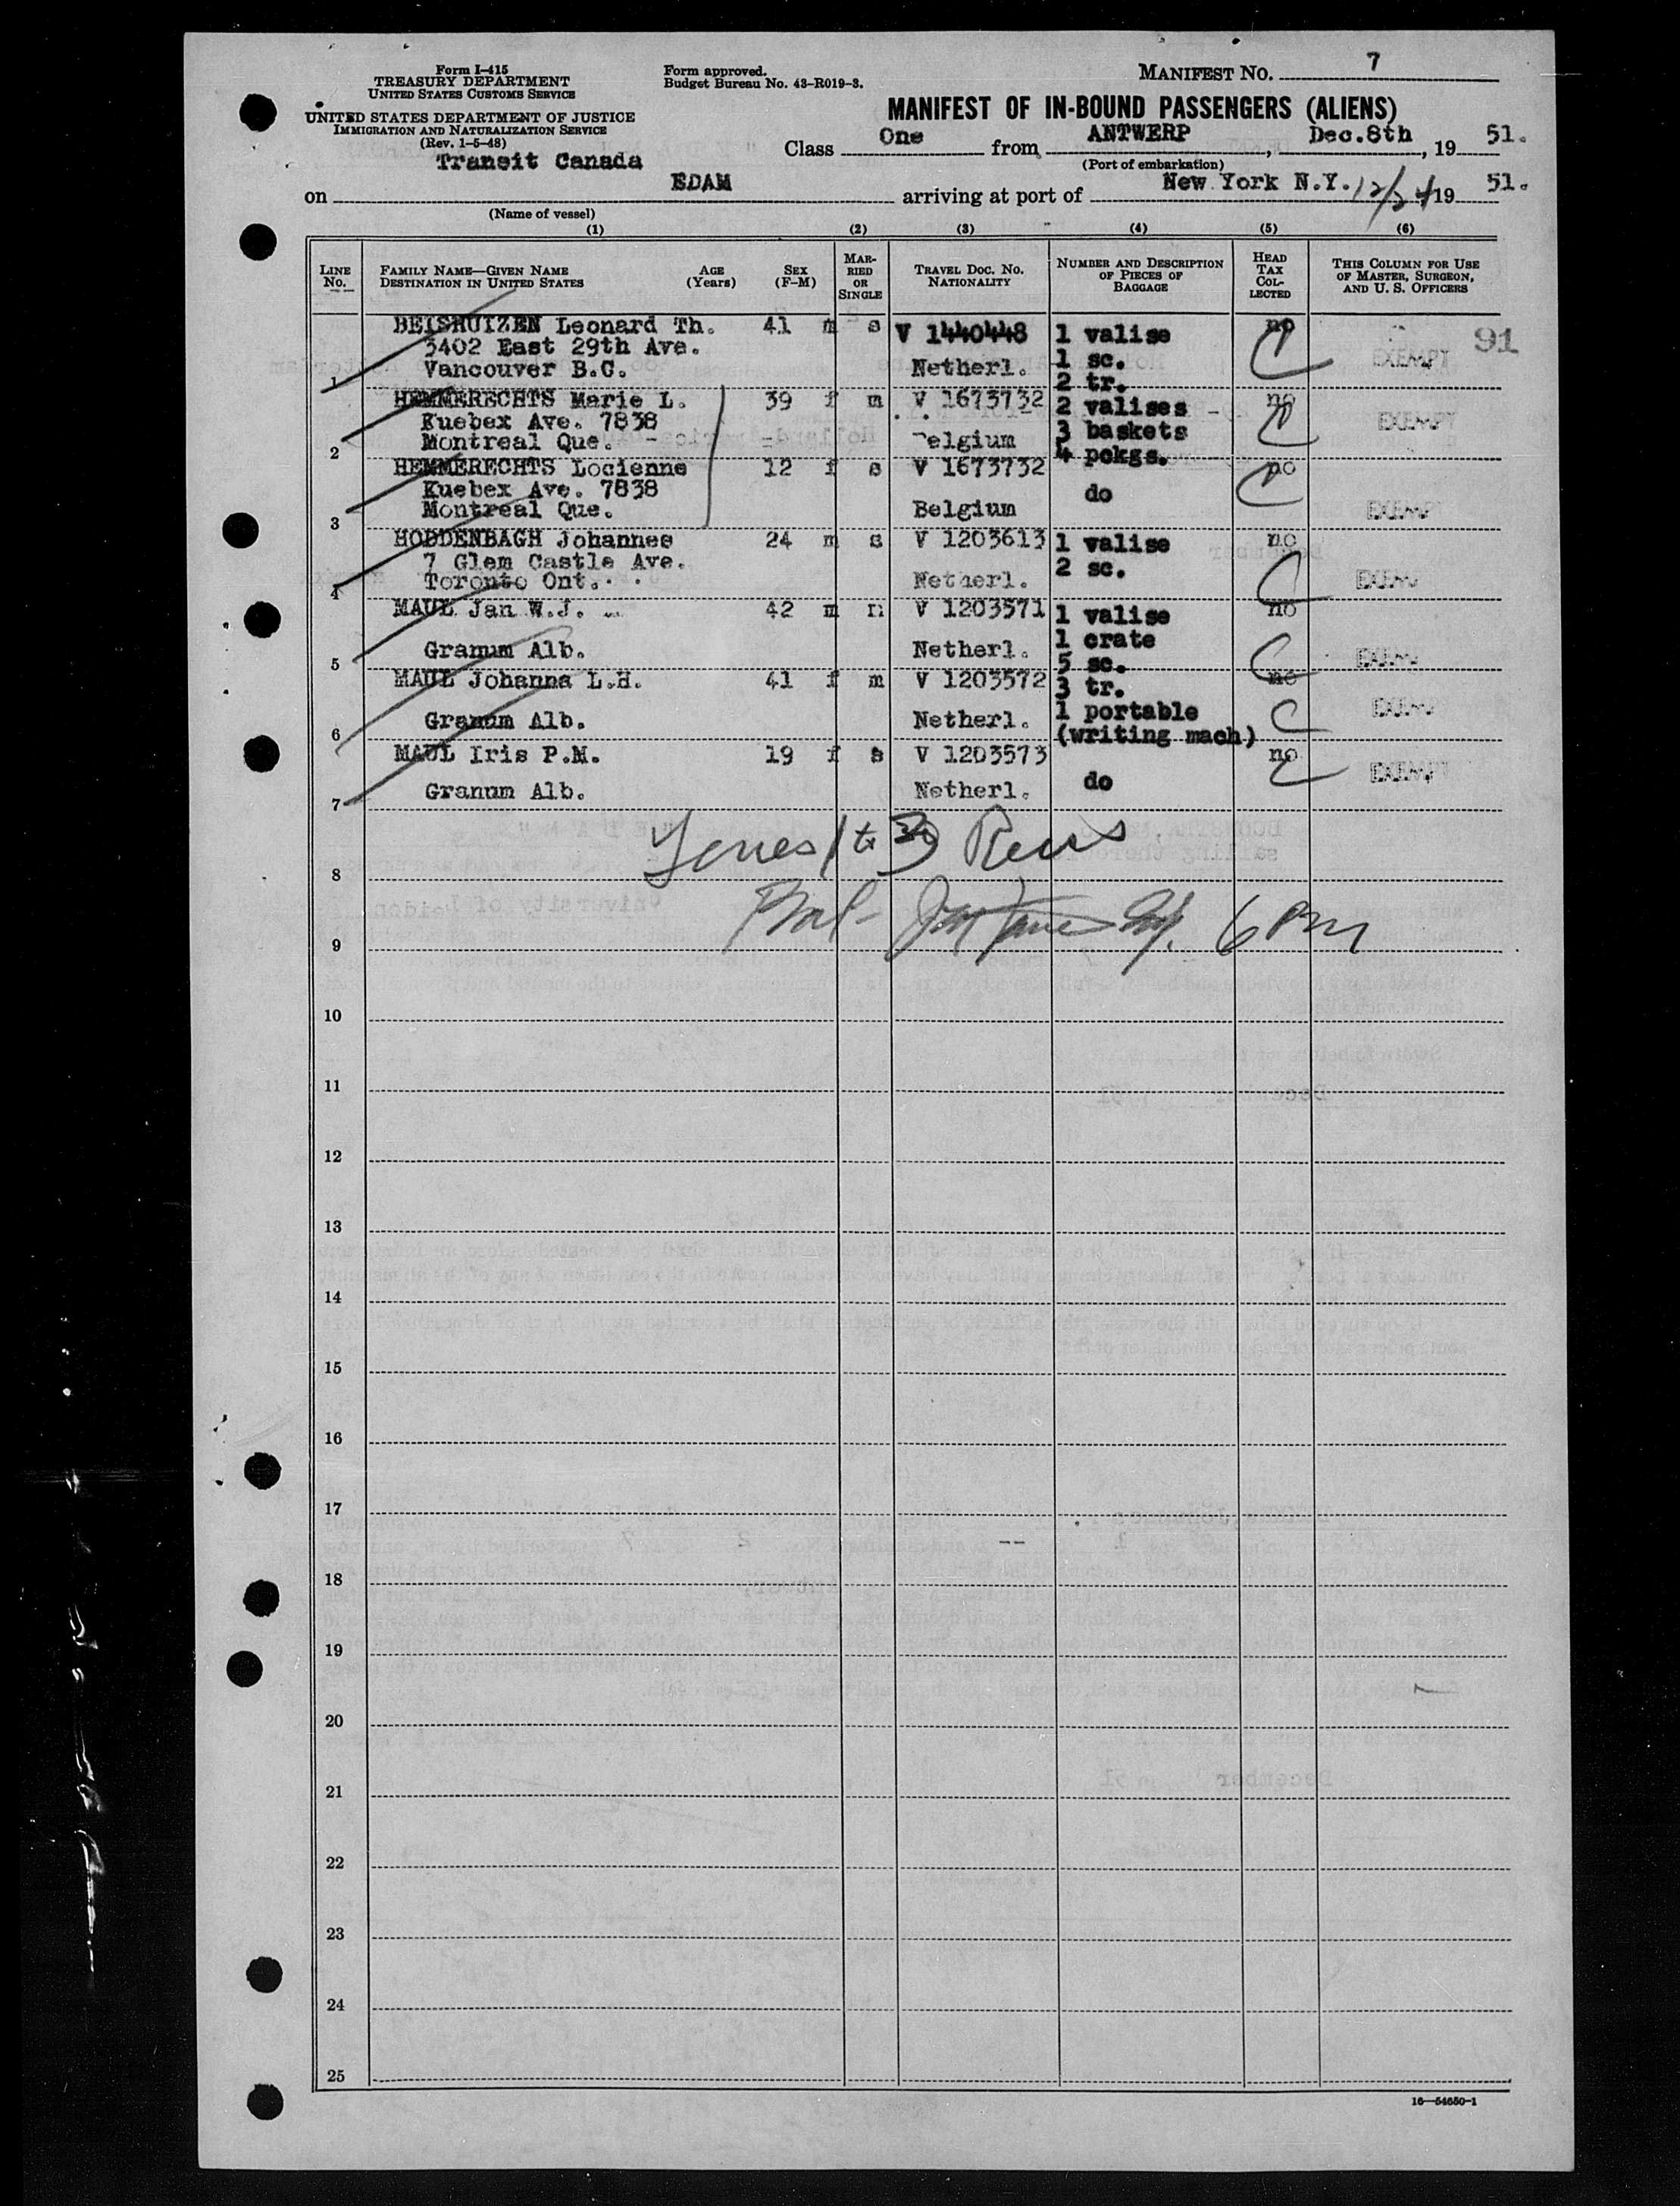 Form I-415
TREASURY DEPARTMENT
UNITED STATES CUSTOMS SERVICE
UNITED STATES DEPARTMENT OF JUSTICE
IMMIGRATION AND NATURALIZATION SERVICE
(Rev. 1-5-48)
Form approved.
Budget Bureau No. 43-R019-3.
MANIFEST NO. 7
MANIFEST OF IN-BOUND PASSENGERS (ALIENS)
Transit Canada
Class One from ANTWERP, Dec.8th, 19 51.
(Port of embarkation)
on EDAM arriving at port of New York N.Y. 12/24 19 51.
(Name of vessel)
(1) (2) (3) (4) (5) (6)
LINE No. FAMILY NAME—GIVEN NAME DESTINATION IN UNITED STATES AGE (Years) SEX (F-M) MARRIED OR SINGLE TRAVEL DOC. NO. NATIONALITY NUMBER AND DESCRIPTION OF PIECES OF BAGGAGE HEAD TAX COLLECTED THIS COLUMN FOR USE OF MASTER, SURGEON, AND U. S. OFFICERS
BEISHUIZEN Leonard Th. 41 m s V 1440448 1 valise no 91
3402 East 29th Ave. 1 sc. EXEMPT
1 Vancouver B.C. Netherl. 2 tr.
HEMMERECHTS Marie L. 39 f m V 1673732 2 valises no
Kuebex Ave. 7838 3 baskets EXEMPT
2 Montreal Que. Belgium 4 pckgs.
HEMMERECHTS Locienne 12 f s V 1673732 no
Kuebex Ave. 7838 do
3 Montreal Que. Belgium EXEMPT
HODDENBAGH Johannes 24 m s V 1203613 1 valise no
7 Glem Castle Ave. 2 sc.
4 Toronto Ont. Netherl. EXEMPT
MAUL Jan W.J. 42 m m V 1203571 1 valise no
1 crate
5 Granum Alb. Netherl. 5 sc. EXEMPT
MAUL Johanna L.H. 41 f m V 1203572 3 tr. no
1 portable EXEMPT
6 Granum Alb. Netherl. (writing mach)
MAUL Iris P.M. 19 f s V 1203573 no
7 Granum Alb. Netherl. do EXEMPT
8
9 6 PM
10
11
12
13
14
15
16
17
18
19
20
21
22
23
24
25
16—54650-1